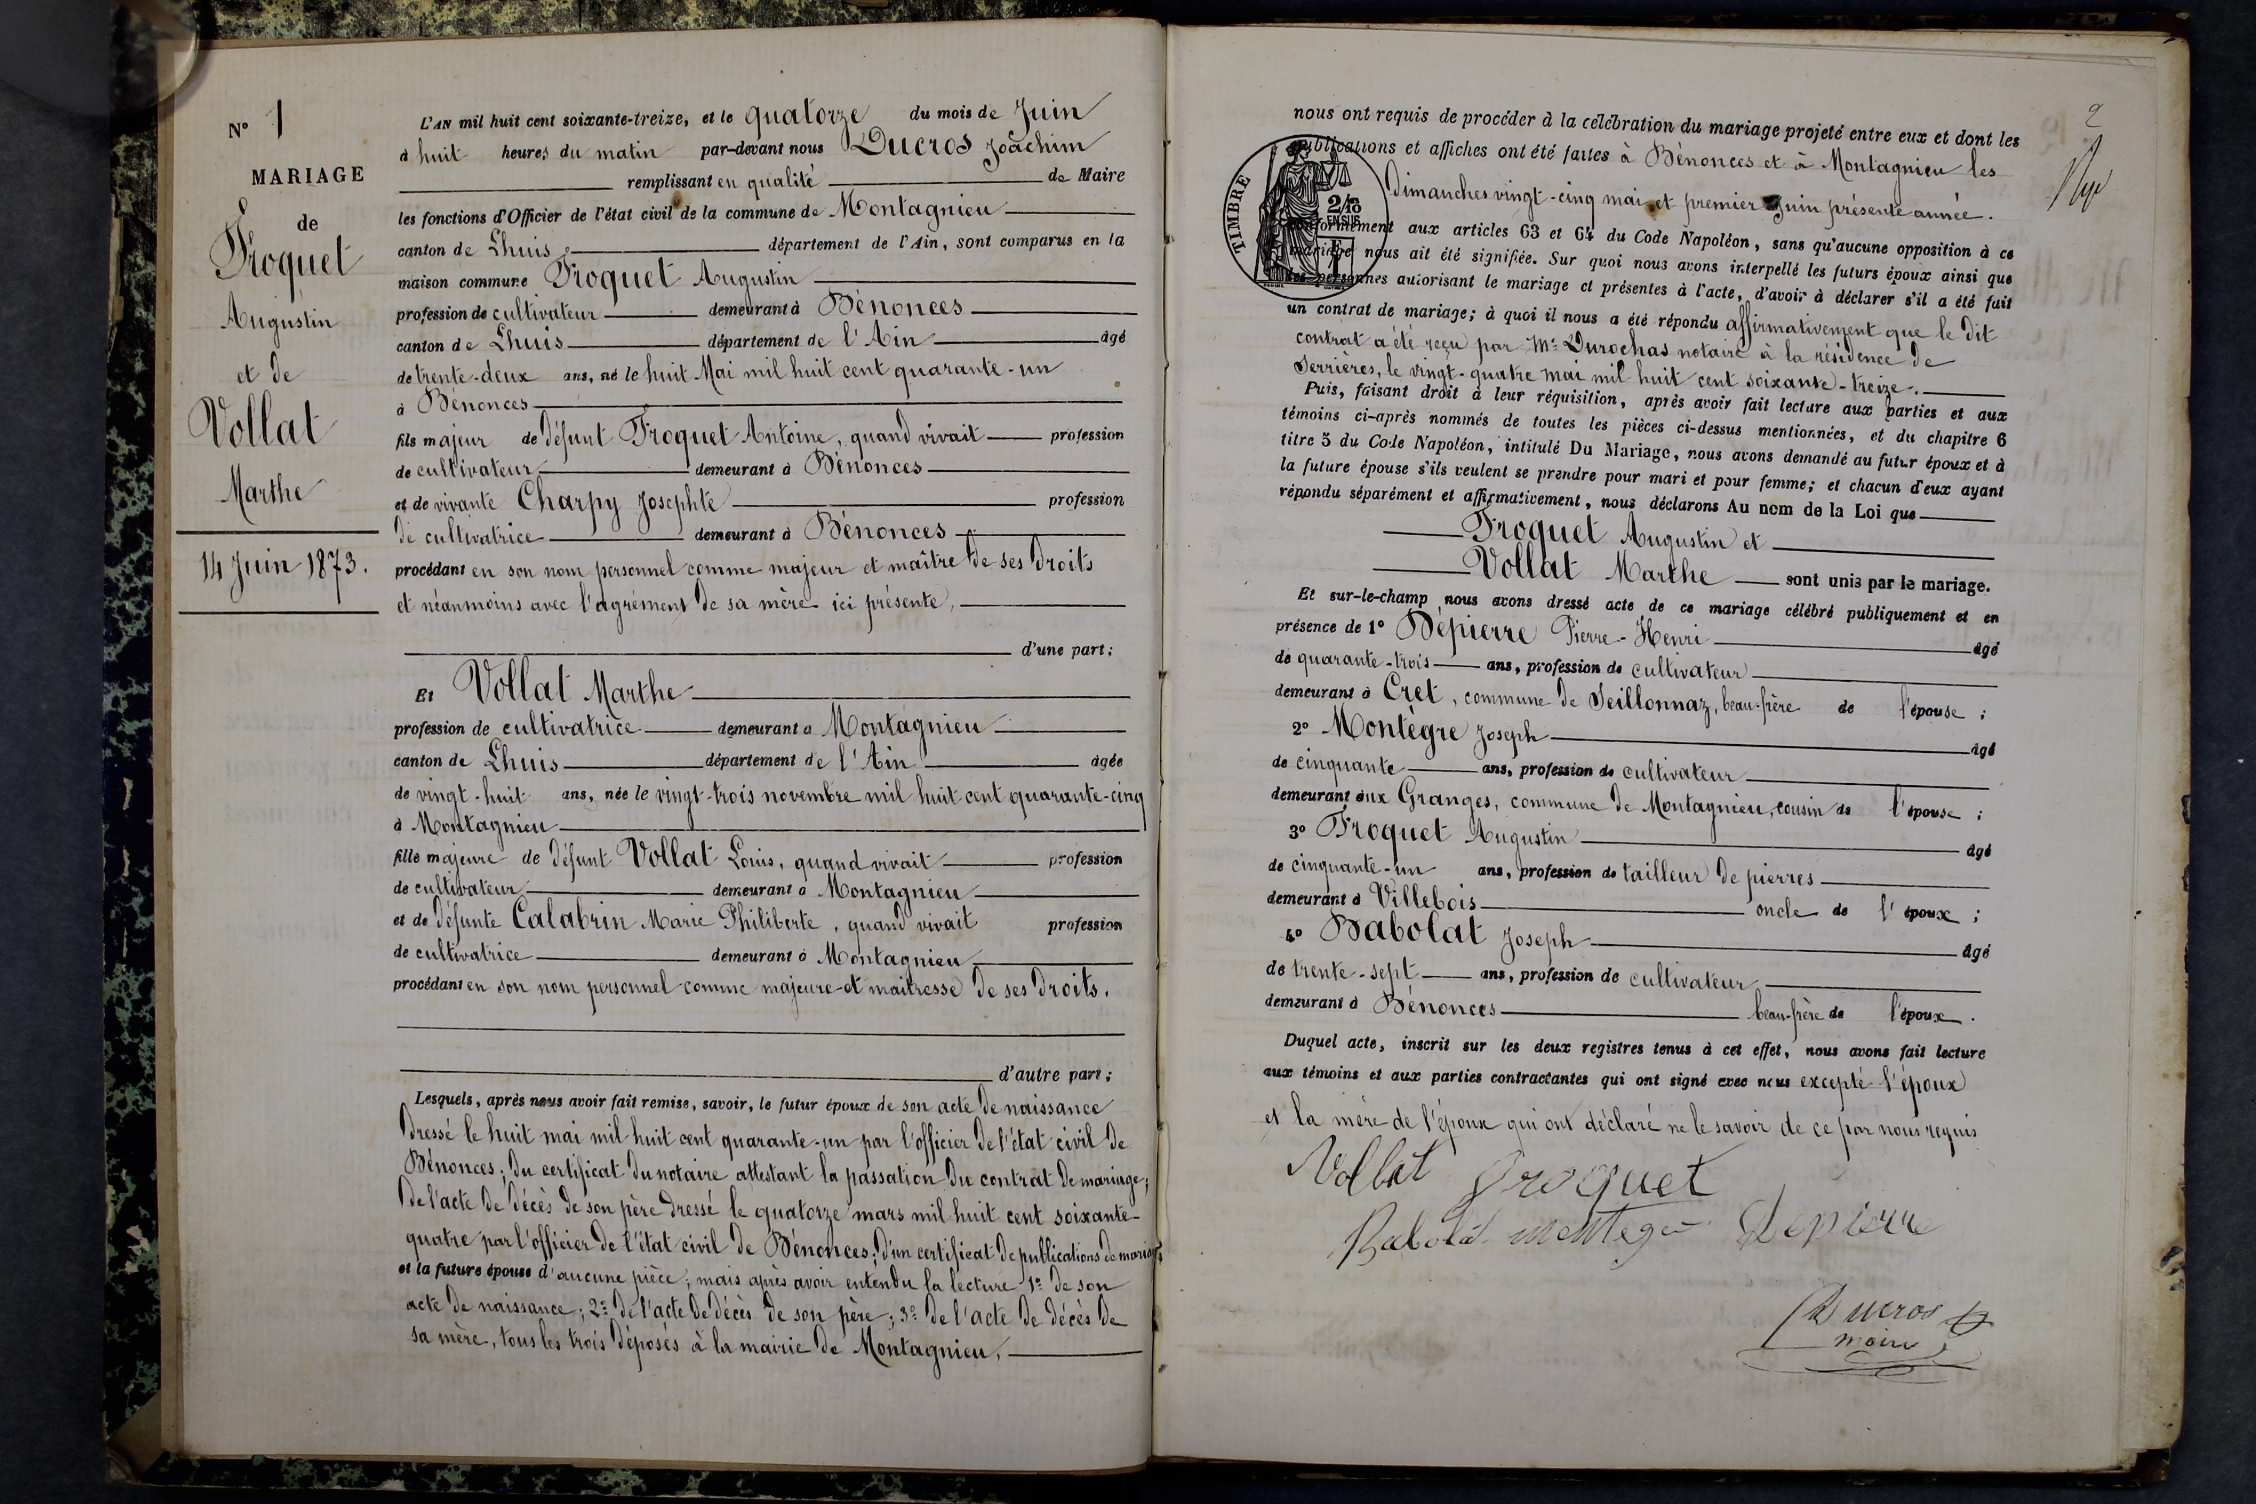 N° 1
MARIAGE
de
Froquet
Augustin
et de
Vollat
Marthe
14 Juin 1873.
L'AN mil huit cent soixante-treize, et le quatorze du mois de Juin
à huit heures du matin par-devant nous Ducros Joachim
remplissant en qualité de Maire
les fonctions d'Officier de l'état civil de la commune de Montagnieu
canton de Lhuis département de l'Ain, sont comparus en la
maison commune Froquet Augustin
profession de cultivateur demeurant à Bénonces
canton de Lhuis département de l'Ain âgé
de trente-deux ans, né le huit Mai mil huit cent quarante-un
à Bénonces
fils majeur de défunt Froquet Antoine, quand vivait profession
de cultivateur demeurant à Bénonces
et de vivante Charpy Josephte profession
de cultivatrice demeurant à Bénonces
procédant en son nom personnel comme majeur et maître de ses droits
et néanmoins avec l'agrément de sa mère ici présente,
d'une part;
Et Vollat Marthe
profession de cultivatrice demeurant à Montagnieu
canton de Lhuis département de l'Ain âgée
de vingt-huit ans, née le vingt-trois novembre mil huit cent quarante-cinq
à Montagnieu
fille majeure de défunt Vollat Louis, quand vivait profession
de cultivateur demeurant à Montagnieu
et de défunte Calabrin Marie Philiberte, quand vivait profession
de cultivatrice demeurant à Montagnieu
procédant en son nom personnel comme majeure et maitresse de ses droits.
d'autre part;
Lesquels, après nous avoir fait remise, savoir, le futur époux de son acte de naissance
dressé le huit mai mil huit cent quarante-un par l'officier de l'état civil de
Bénonces; du certificat du notaire attestant la passation du contrat de mariage;
de l'acte de décès de son père dressé le quatorze mars mil huit cent soixante-
quatre par l'officier de l'état civil de Bénonces; d'un certificat de publications de mariage
et la future épouse d'aucune pièce; mais après avoir entendu la lecture 1° de son
acte de naissance; 2° de l'acte de décès de son père; 3° de l'acte de décès de
sa mère, tous les trois déposés à la mairie de Montagnieu,
2
nous ont requis de procéder à la célébration du mariage projeté entre eux et dont les
publications et affiches ont été faites à Bénonces et à Montagnieu les
Dimanches vingt-cinq mai et premier Juin présente année.
conformément aux articles 63 et 64 du Code Napoléon, sans qu'aucune opposition à ce
mariage nous ait été signifiée. Sur quoi nous avons interpellé les futurs époux ainsi que
les personnes autorisant le mariage et présentes à l'acte, d'avoir à déclarer s'il a été fait
TIMBRE
2/10
EN SUR
un contrat de mariage; à quoi il nous a été répondu affirmativement que le dit
contrat a été reçu par Me Durochas notaire à la résidence de
Serrières, le vingt-quatre mai mil huit cent soixante-treize.
Puis, faisant droit à leur réquisition, après avoir fait lecture aux parties et aux
témoins ci-après nommés de toutes les pièces ci-dessus mentionnées, et du chapitre 6
titre 5 du Code Napoléon, intitulé Du Mariage, nous avons demandé au futur époux et à
la future épouse s'ils veulent se prendre pour mari et pour femme; et chacun d'eux ayant
répondu séparément et affirmativement, nous déclarons Au nom de la Loi que
Froquet Augustin et
Vollat Marthe sont unis par le mariage.
Et sur-le-champ nous avons dressé acte de ce mariage célébré publiquement et en
présence de 1° Dépierre Pierre-Henri âgé
de quarante-trois ans, profession de cultivateur
demeurant à Cret, commune de Seillonnaz, beau-frère de l'épouse;
2° Montègre Joseph âgé
de cinquante ans, profession de cultivateur
demeurant aux Granges, commune de Montagnieu, cousin de l'épouse;
3° Froquet Augustin âgé
de cinquante-un ans, profession de tailleur de pierres
demeurant à Villebois oncle de l'époux;
4° Babolat Joseph âgé
de trente-sept ans, profession de cultivateur
demeurant à Bénonces beau-frère de l'époux.
Duquel acte, inscrit sur les deux registres tenus à cet effet, nous avons fait lecture
aux témoins et aux parties contractantes qui ont signé avec nous excepté l'époux
et la mère de l'époux qui ont déclaré ne le savoir de ce par nous requis
Vollat Froquet
Babolat Montegre Depierre
Ducros
maire